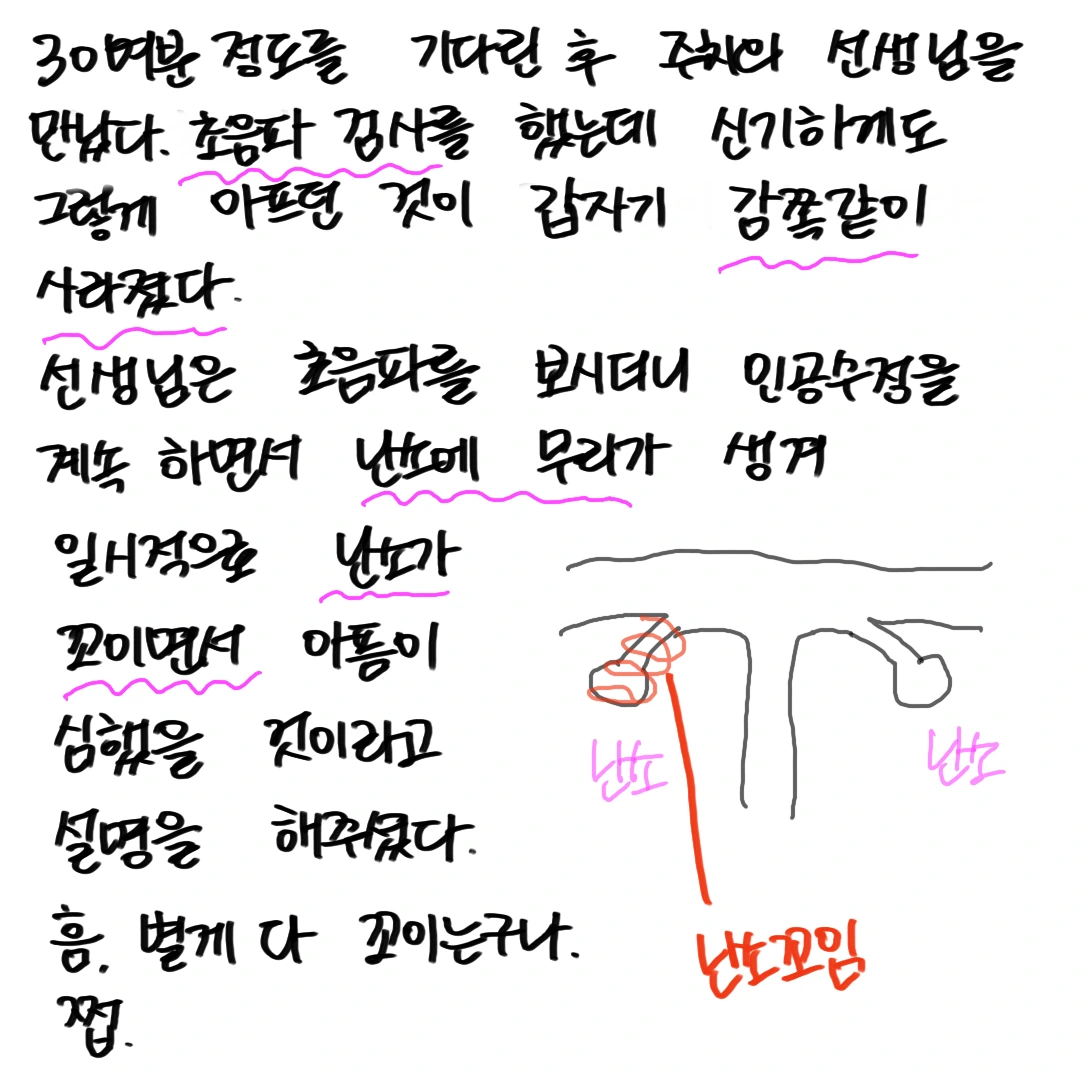 30여분 정도를 기다린 후 주치의 선생님을
만났다. 초음파 검사를 했는데 신기하게도
그렇게 아프던 것이 갑자기 감쪽같이
사라졌다.
선생님은 초음파를 보시더니 인공수정을
계속 하면서 난소에 무리가 생겨
일시적으로 난소가
꼬이면서 아픔이
심했을 것이라고
설명을 해주셨다.
흠. 별게 다 꼬이는구나.
쩝.
난소
난소
난소꼬임